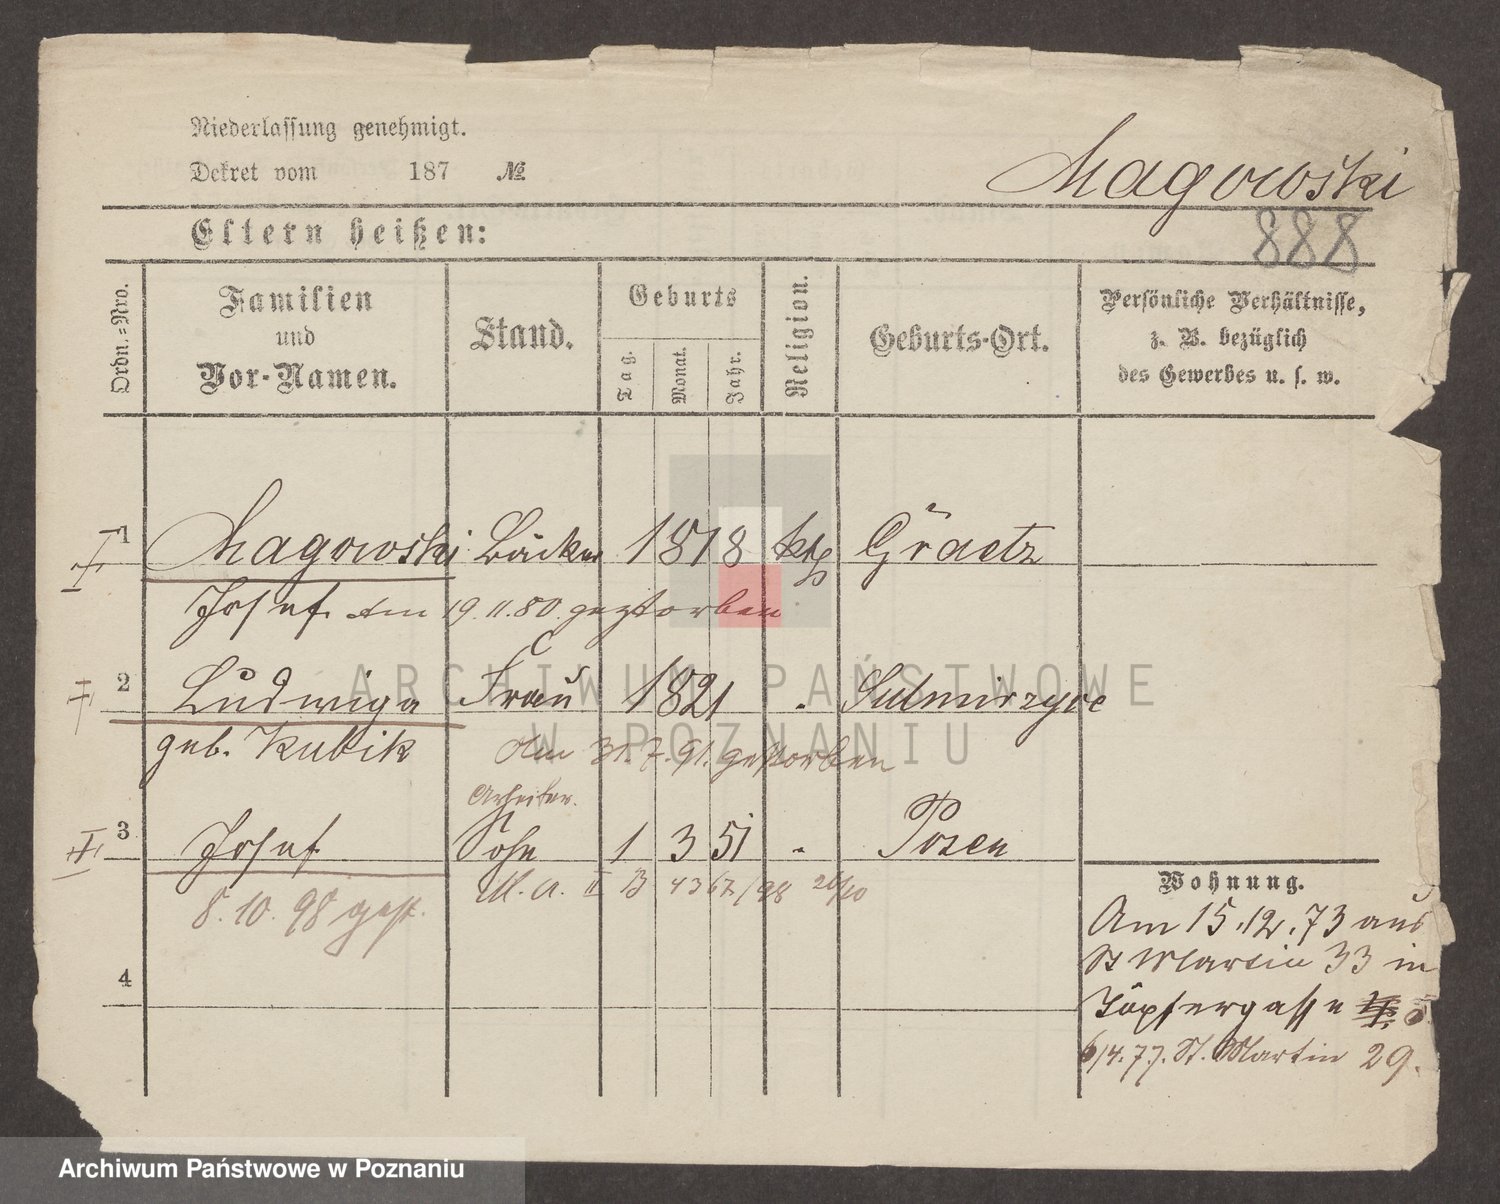 Niederlassung genehmigt.
Dekret vom 187 №
Magowski
888
Eltern heißen:
Ordn.=Nro.
Familien
und
Vor-Namen.
Stand.
Geburts
Tag.
Monat.
Jahr.
Religion.
Geburts-Ort.
Persönliche Verhältnisse,
z. B. bezüglich
des Gewerbes u. s. w.
1 Magowski Bäcker 1818 kth Graetz
Josef. Am 19.11.80. gestorben
2 Ludwiga Frau 1821 " Sulmirzyce
geb. Kubik Am 31.7.91. gestorben
Arbeiter.
3 Josef Sohn 1 3 51 " Posen
8.10.98 gest.
4
Wohnung.
Am 15.12.73 aus
St Martin 33 in
Töpfergasse
6/4.77. St. Martin 29.
ARCHIWUM PAŃSTWOWE
W POZNANIU
Archiwum Państwowe w Poznaniu